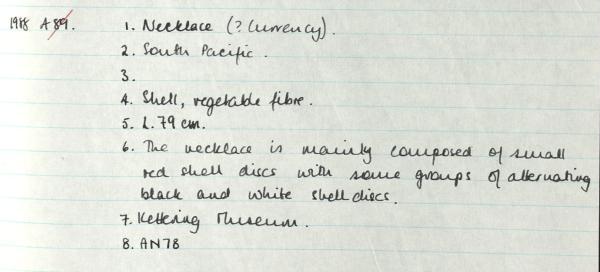 1988 A89. 1. Necklace (? Currency).
2. South Pacific.
3.
4. Shell, vegetable fibre.
5. L. 79 cm.
6. The necklace is mainly composed of small
red shell discs with some groups of alternating
black and white shell discs.
7. Kettering Museum.
8. AN78